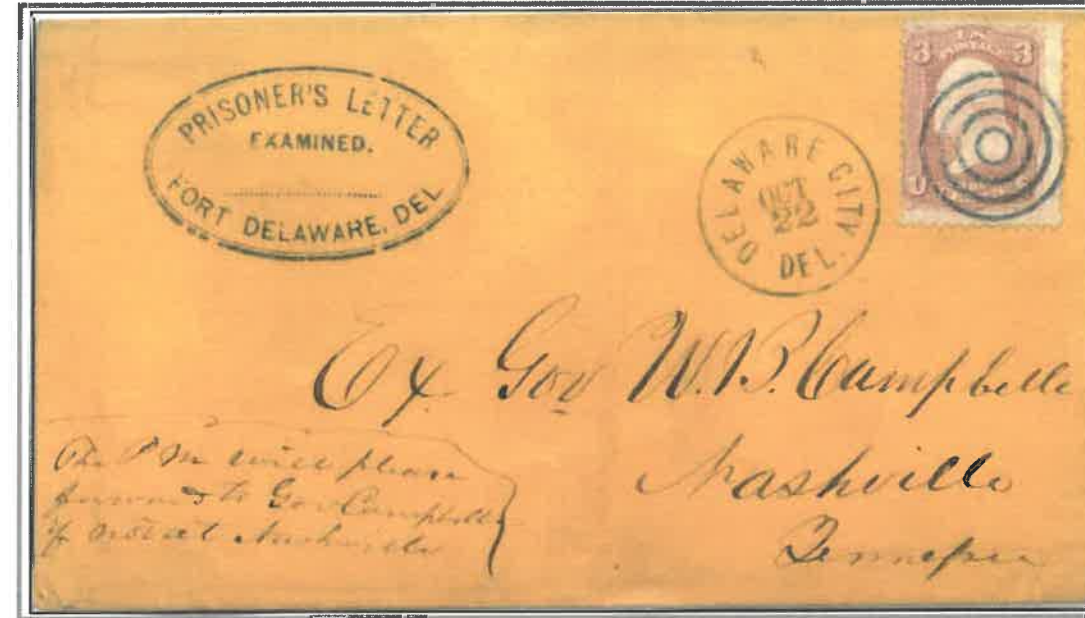 PRISONER'S LETTER
EXAMINED.
FORT DELAWARE, DEL
DELAWARE CITY
OCT
22
DEL.
3 3
Ex. Gov W. B. Campbelle
Nashville
Tennessee
The P M will please
forward to Gov Campbelle
if not at Nashville